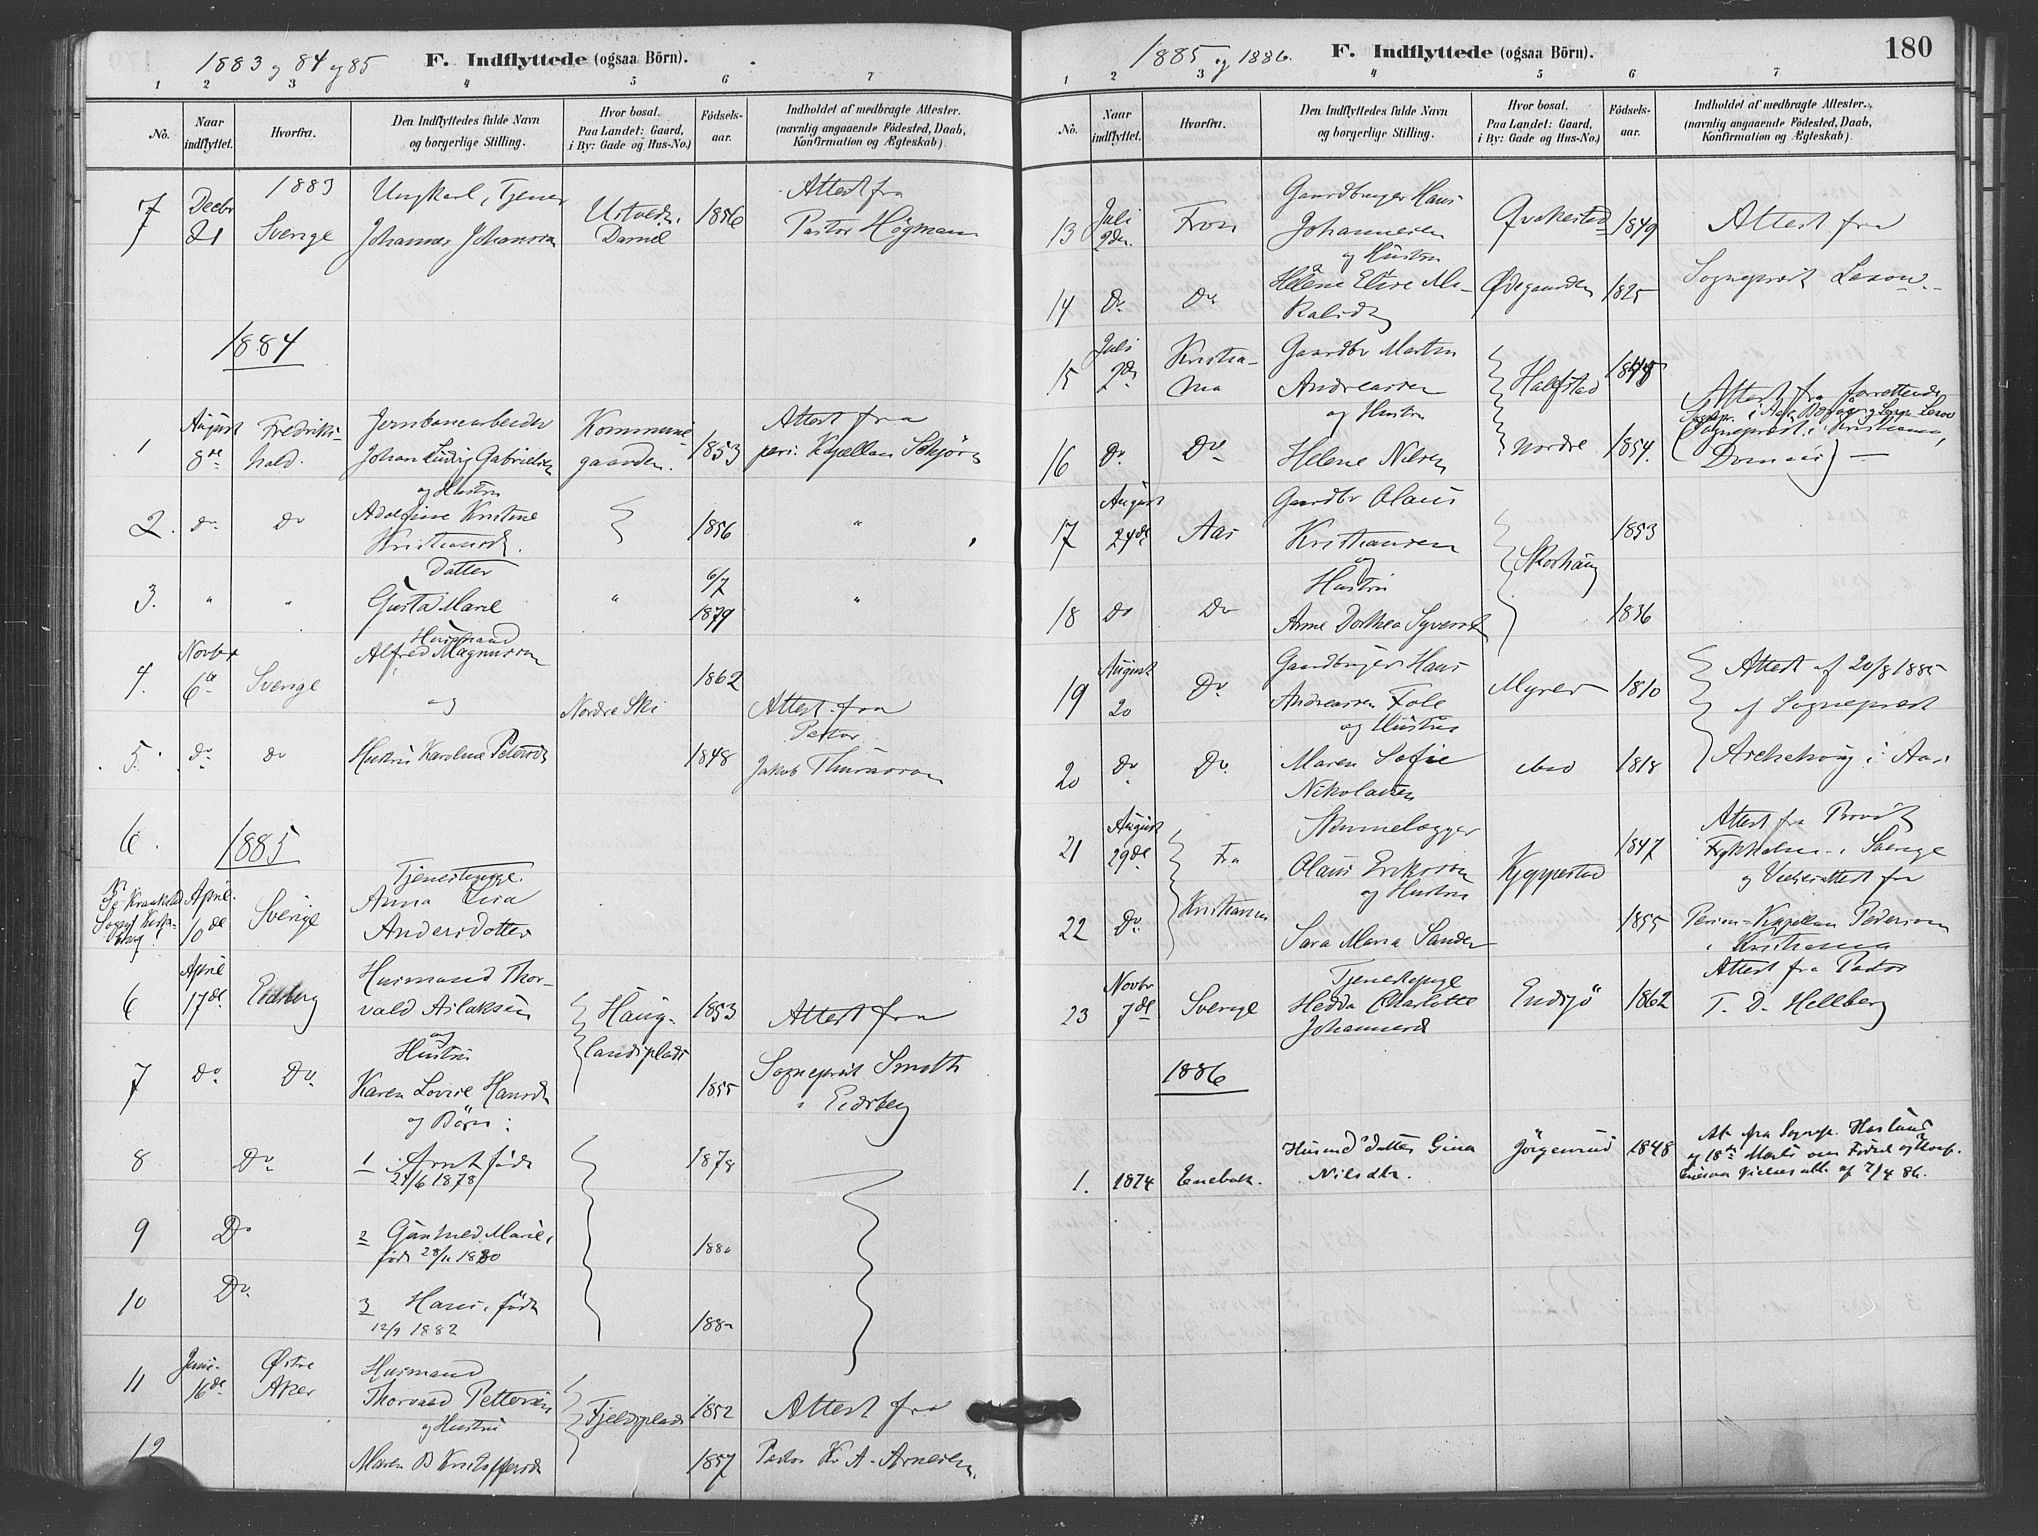 1883 og 84 og 85
F. Indflyttede (ogsaa Börn).
1 2 3 4 5 6 7
No.
Naar indflyttet.
Hvorfra.
Den Indflyttedes fulde Navn og borgerlige Stilling.
Hvor bosat. Paa Landet: Gaard, i By: Gade og Hus-No.)
Födsels-aar.
Indholdet af medbragte Attester. (navnlig angaaende Födested, Daab, Konfirmation og Ægteskab)
1883
7 Decbr 21 Sverige
Ungkarl, Tjener
Johannes Johansson
1856
Attest fra
Pastor Högman
1884
1 August 8de Fredriks-
hald.
Jernbanearbeider
Johan Ludvig Gabrielsen
Kommune-
gaarden.
1853
Attest fra
pers. Kapellan Schjörn
og Hustru
2. do. do
Adolfine Kristine
Kristiansd.
1856
"
Datter
3. " "
Gusta Marie
"
6/7
1879
"
Husmand
4. Novbr 6te Sverige
Alfred Magnusson
og
Nordre Ski
1862
Attest fra
Pastor
5. do. do
Hustru Karoline Petersd
1848
Jakob Thurasson
6.
1885
Tjenestepige
April. 10de Sverige
Anna
Andersdotter
6 April 17de Eidsberg
Husmand Thor-
vald Aslaksen
og
Hustru
Haug-
landsplads
1853
Attest fra
7 Do Do.
Karen Lovise Hansd
og Börn:
1855
Sogneprest Smith
i Eidsberg
8 Do
1 Arnt född
21/6 1878
1878
9 Do
2 Marie,
född 28/11 1880
1880
10 Do.
3 Hans, född
12/9 1882
1882
11 Juni. 16de Østre
Aker
Husmand
Thorvald Pettersen
og Hustru
Fjeldsplads
1852
Attest fra
12
Maren B Kristoffersd
1857
Pastor Kr A. Arnesen.
1885 og 1886.
F. Indflyttede (ogsaa Börn).
180
1 2 3 4 5 6 7
No.
Naar indflyttet.
Hvorfra.
Den Indflyttedes fulde Navn og borgerlige Stilling.
Hvor bosat. Paa Landet: Gaard, i By: Gade og Hus-No.)
Födsels-aar.
Indholdet af medbragte Attester. (navnlig angaaende Födested, Daab, Konfirmation og Ægteskab).
13 Juli Fron
Gaardbruger Hans
Johannesen
og Hustru
Qvakestad
1849
Attest fra
14 Do Do
Helene Elise
Ødegaarden
1825
Sogneprest
15 Juli Kristia-
nia
Gaardbr Martin
Andreassen
og Hustru
Halfstad
Attest fra
16 Do. Do
Helene Nilsen
nordre
1854.
August
17 24de Aas
Gaardbr Olaus
Kristiansen
og
Hustru
Skorhaug
1853
18 do Do
Anne Dorthea Syversd
1836
19 August 20 Do
Gaardbruger Hans
Andreassen Fole
og Hustru
Myrer
1810
Attest af 20/8 1885
af Sogneprest
20 Do Do.
Maren Sofie
Nikolaisen
1818
i Aas
21 August 29de Fra
Kristiania
Olaus Eriksson
og Hustru
Kjeppestad
1847
Attest fra Provst
i Sverige
og Vielseattest fra
22 Do.
Sara Maria Sander
1855
Person-Kapellan Pederson
i Kristiania
23 Novbr 7de Sverige
Tjenestepige
Hedda Charlotte
Johannesd
Endsjö
1862
Attest fra Pastor
T. D. Hellberg
1886
1. 1874 Enebak.
Husmd datter Gina
Nilsdtr.
Jörgensrud
1848
At. fra Sognep. Haslund